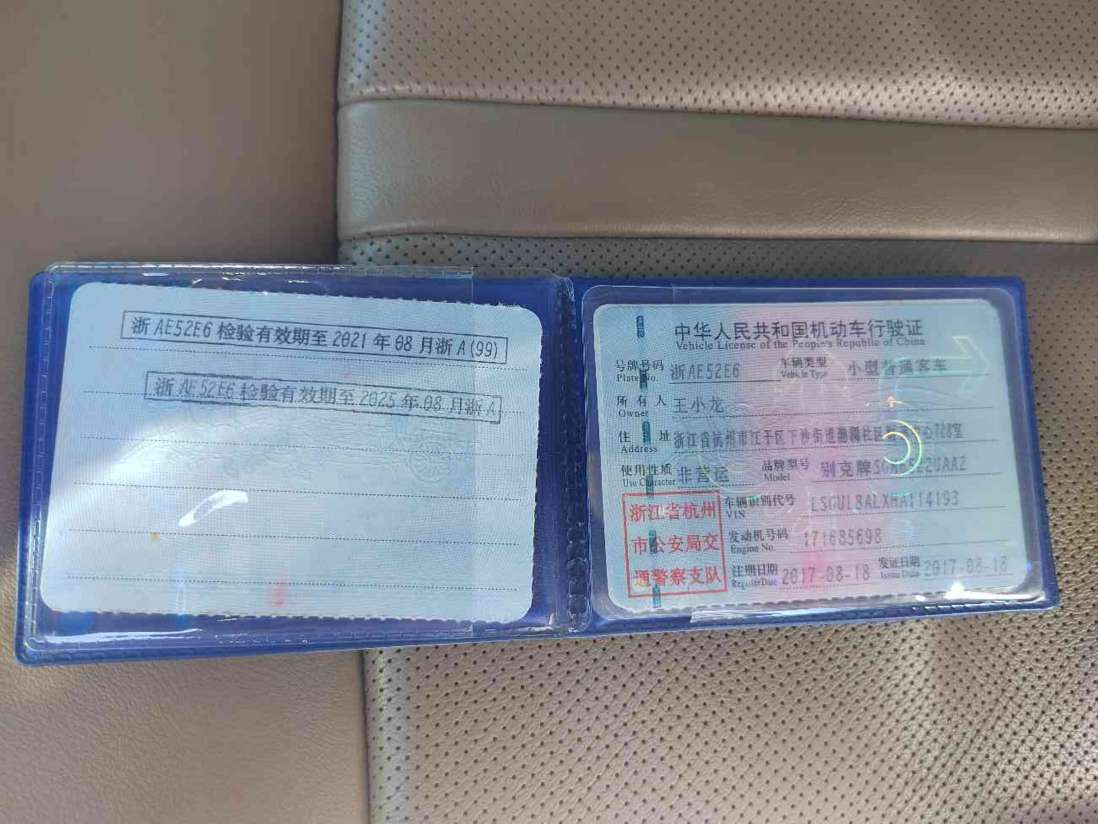 浙AE52E6检验有效期至2021年08月浙A(99)
浙AE52E6检验有效期至2025年08月浙A
中华人民共和国机动车行驶证
Vehicle License of the People's Republic of China
号牌号码 浙AE52E6 车辆类型 小型普通客车
Plate No. Vehicle Type
所有人 王小龙
Owner
住址 浙江省杭州市江干区下沙街道 社区 心728室
Address
使用性质 非营运 品牌型号 别克牌 20AA2
Use Character Model
车辆识别代号 LSGUL8ALXHA114193
VIN
发动机号码 171685698
Engine No.
注册日期 2017-08-18 发证日期 2017-08-18
Register Date Issue Date
浙江省杭州
市公安局交
通警察支队